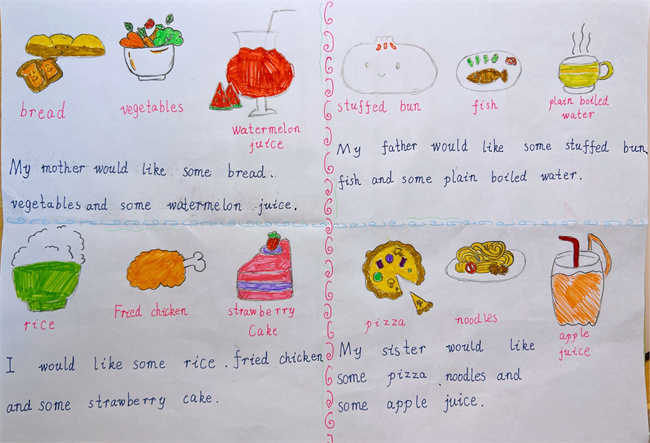 bread
vegetables
Watermelon
juice
My mother would like some bread.
vegetables and some watermelon juice.
stuffed bun
fish
plain boiled
water
My father would like some stuffed bun,
fish and some plain boiled water.
rice
Fried chicken
strawberry
Cake
I would like some rice. fried chicken
and some strawberry cake.
pizza
noodles
apple
juice
My sister would like
some pizza, noodles and
some apple juice.